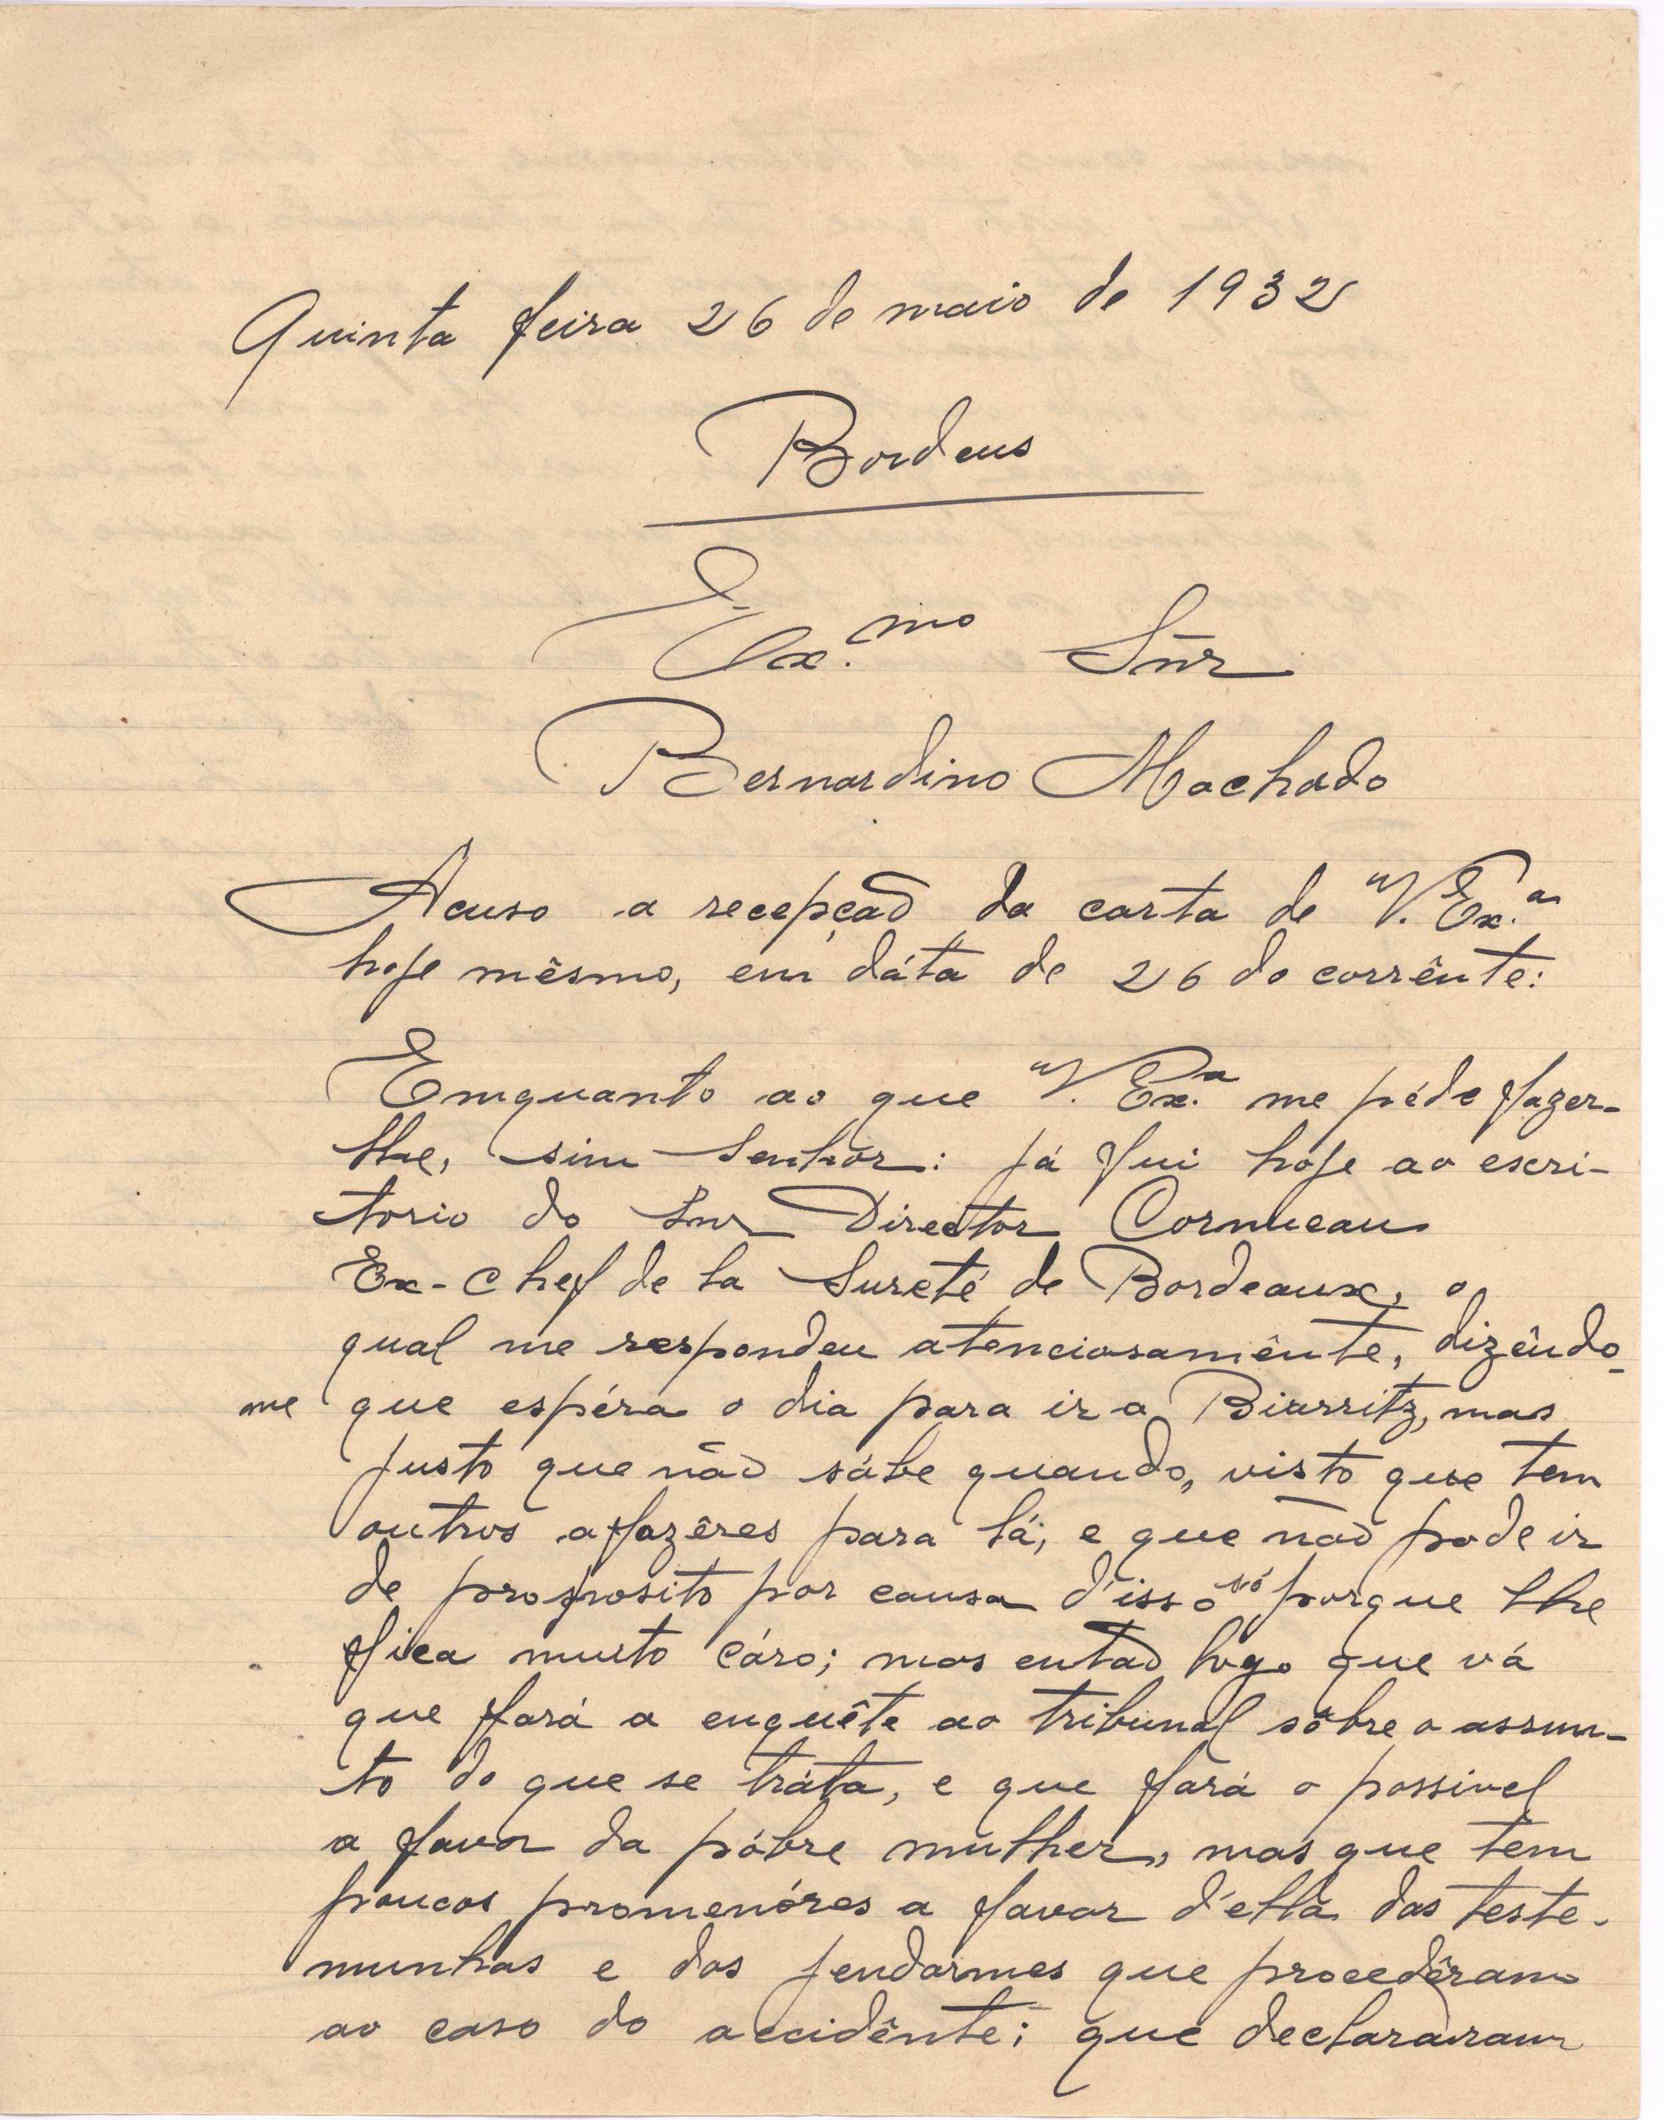 Quinta feira 26 de maio de 1932
Bordeus
Ex.mo Snr
Bernardino Machado
Acuso a recepçaõ da carta de V. Ex.a
hoje mêsmo, em dáta de 26 do corrênte:
Emquanto ao que V. Ex.a me péde fazer-
lhe, sim Senhôr: já fui hoje ao escri-
torio do Snr Director Cornueau
Ex-chef de la Sureté de Bordeaux, o
qual me respondeu atenciosamênte, dizêndo-
me que espéra o dia para ir a Biarritz, mas
justo que nãó sábe quando, visto que tem
outros afazêres para lá; e que nãó pode ir
de proposito por causa d'isso só porque lhe
fica muito cáro; mas entaõ logo que vá
que fará a enquête ao tribunal sôbre o assun-
to do que se tráta, e que fará o possivel
a favor da póbre mulher, mas que tem
poucos promenóres a favor d'ella das teste-
munhas e dos jendarmes que procedêram
ao caso do accidênte; que declararam